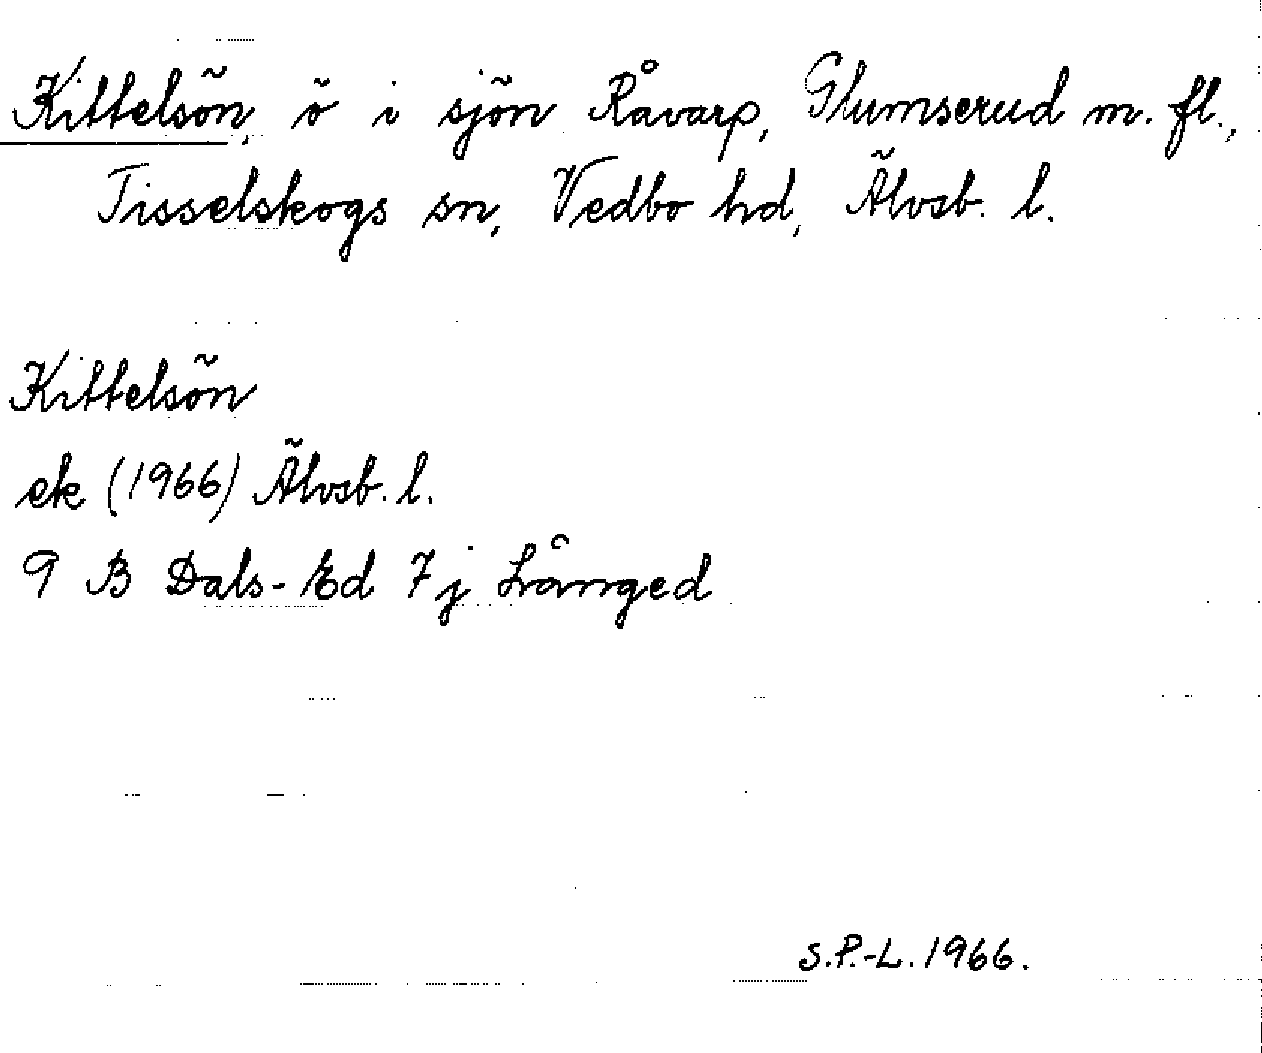 Kittelsön, ö i sjön Råvarp, Glumserud m. fl.,
Tisselskogs sn, Vedbo hd, Älvsb. l.
Kittelsön
ek (1966) Älvsb. l.
9 B Dals-Ed 7j Långed
S.P.-L. 1966.